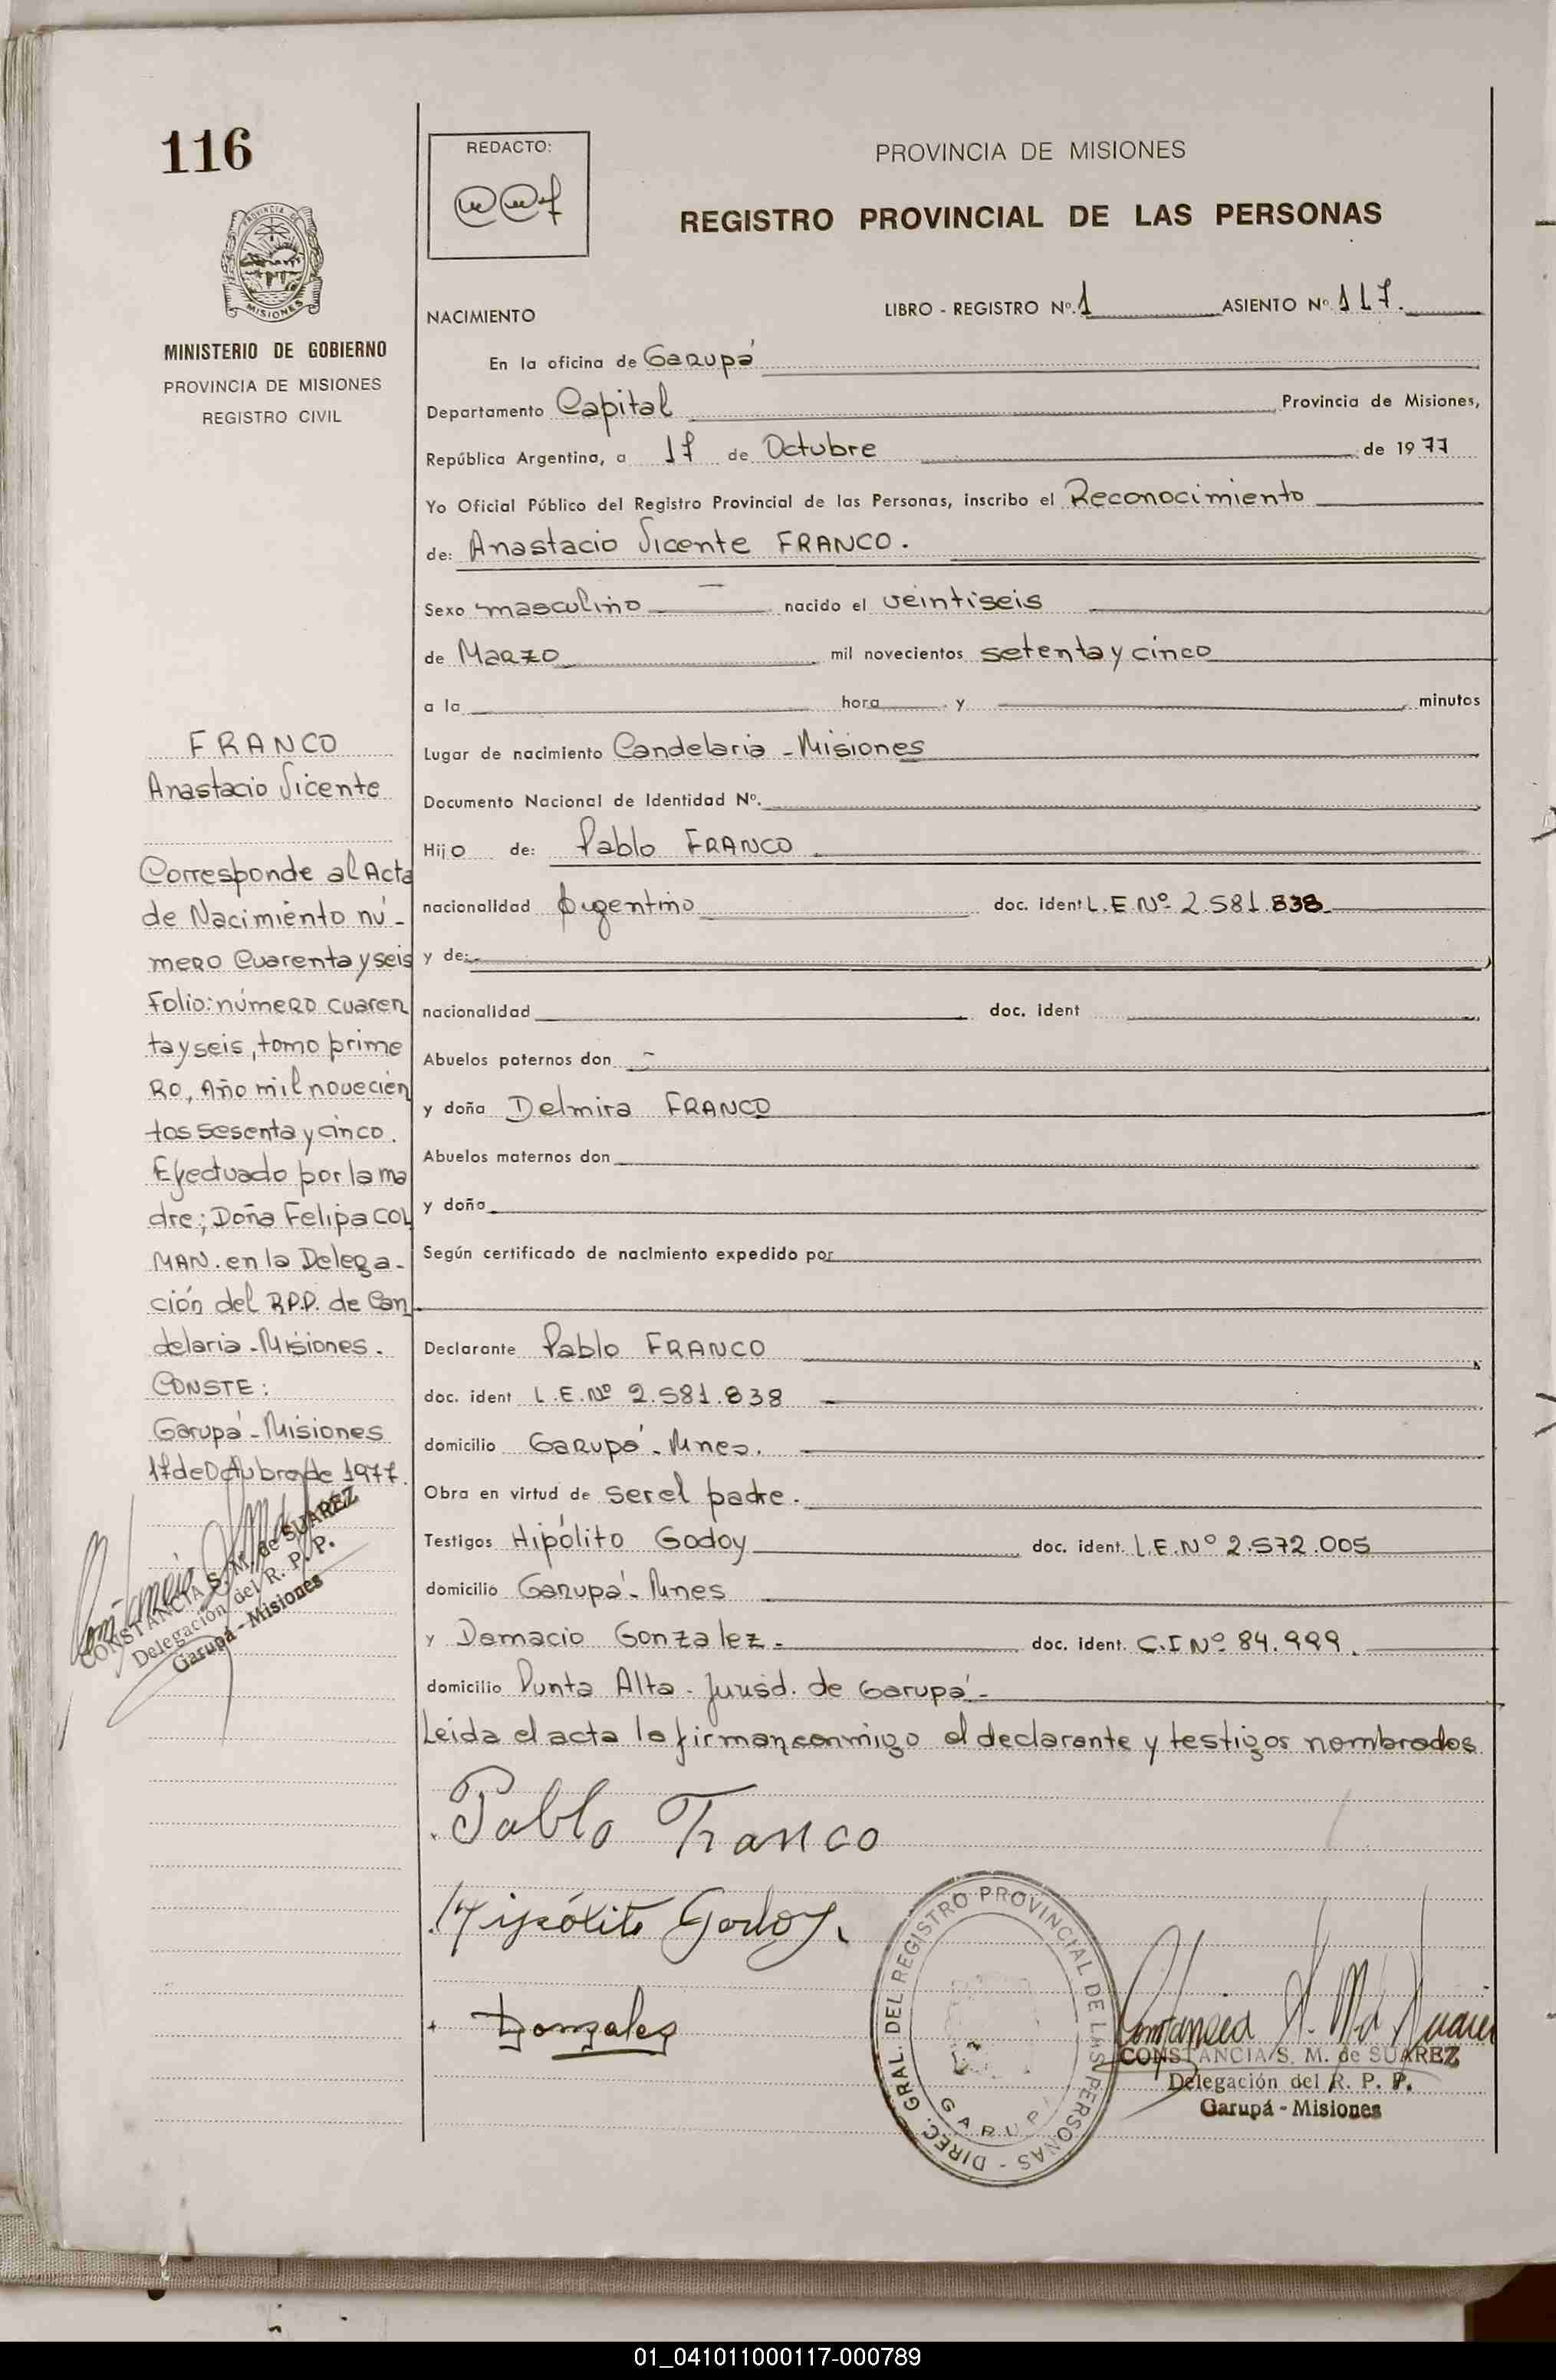 116
REDACTO:
PROVINCIA DE MISIONES
REGISTRO PROVINCIAL DE LAS PERSONAS
PROVINCIA DE
MISIONES
MINISTERIO DE GOBIERNO
PROVINCIA DE MISIONES
REGISTRO CIVIL
NACIMIENTO LIBRO - REGISTRO Nº. 1 ASIENTO Nº 117.
En la oficina de Garupá
Departamento Capital Provincia de Misiones,
República Argentina, a 17 de Octubre de 1977
Yo Oficial Público del Registro Provincial de las Personas, inscribo el Reconocimiento
de: Anastacio Vicente FRANCO.
Sexo masculino nacido el veintiseis
de Marzo mil novecientos setenta y cinco
a la hora y minutos
Lugar de nacimiento Candelaria - Misiones
Documento Nacional de Identidad Nº.
Hijo de: Pablo FRANCO
nacionalidad Argentino doc. ident L.E.Nº 2.581.838
y de:
nacionalidad doc. ident
Abuelos paternos don -
y doña Delmira FRANCO
Abuelos maternos don
y doña
Según certificado de nacimiento expedido por
Declarante Pablo FRANCO
doc. ident L.E.Nº 2.581.838
domicilio Garupá - Mnes.
Obra en virtud de ser el padre.
Testigos Hipólito Godoy doc. ident. L.E.Nº 2.572.005
domicilio Garupá - Mnes
y Damacio Gonzalez. doc. ident. C.I Nº 84.999.
domicilio Punta Alta - Jurisd. de Garupá -
Leida el acta la firman conmigo el declarante y testigos nombrados
Pablo Franco
Hipólito Godoy.
Gonzalez
DIREC. GRAL. DEL REGISTRO PROVINCIAL DE LAS PERSONAS -
GARUPA
CONSTANCIA S. M. de SUAREZ
Delegación del R. P. P.
Garupá - Misiones
FRANCO
Anastacio Vicente
Corresponde al Acta
de Nacimiento nú-
mero Cuarenta y seis
Folio: número cuaren
ta y seis, tomo prime
ro, Año mil novecien
tos sesenta y cinco.
Efectuado por la ma
dre; Doña Felipa COL
MAN. en la Delega-
ción del R.P.P. de Can
delaria - Misiones.
CONSTE:
Garupá - Misiones
17 de Octubre de 1977.
CONSTANCIA S. M. de SUAREZ
Delegación del R. P. P.
Garupá - Misiones
01_041011000117-000789